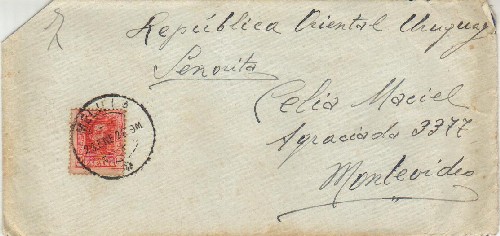 República Oriental Uruguay
Señorita
Celia Maciel
Agraciada 3377
Montevideo
MELILLA